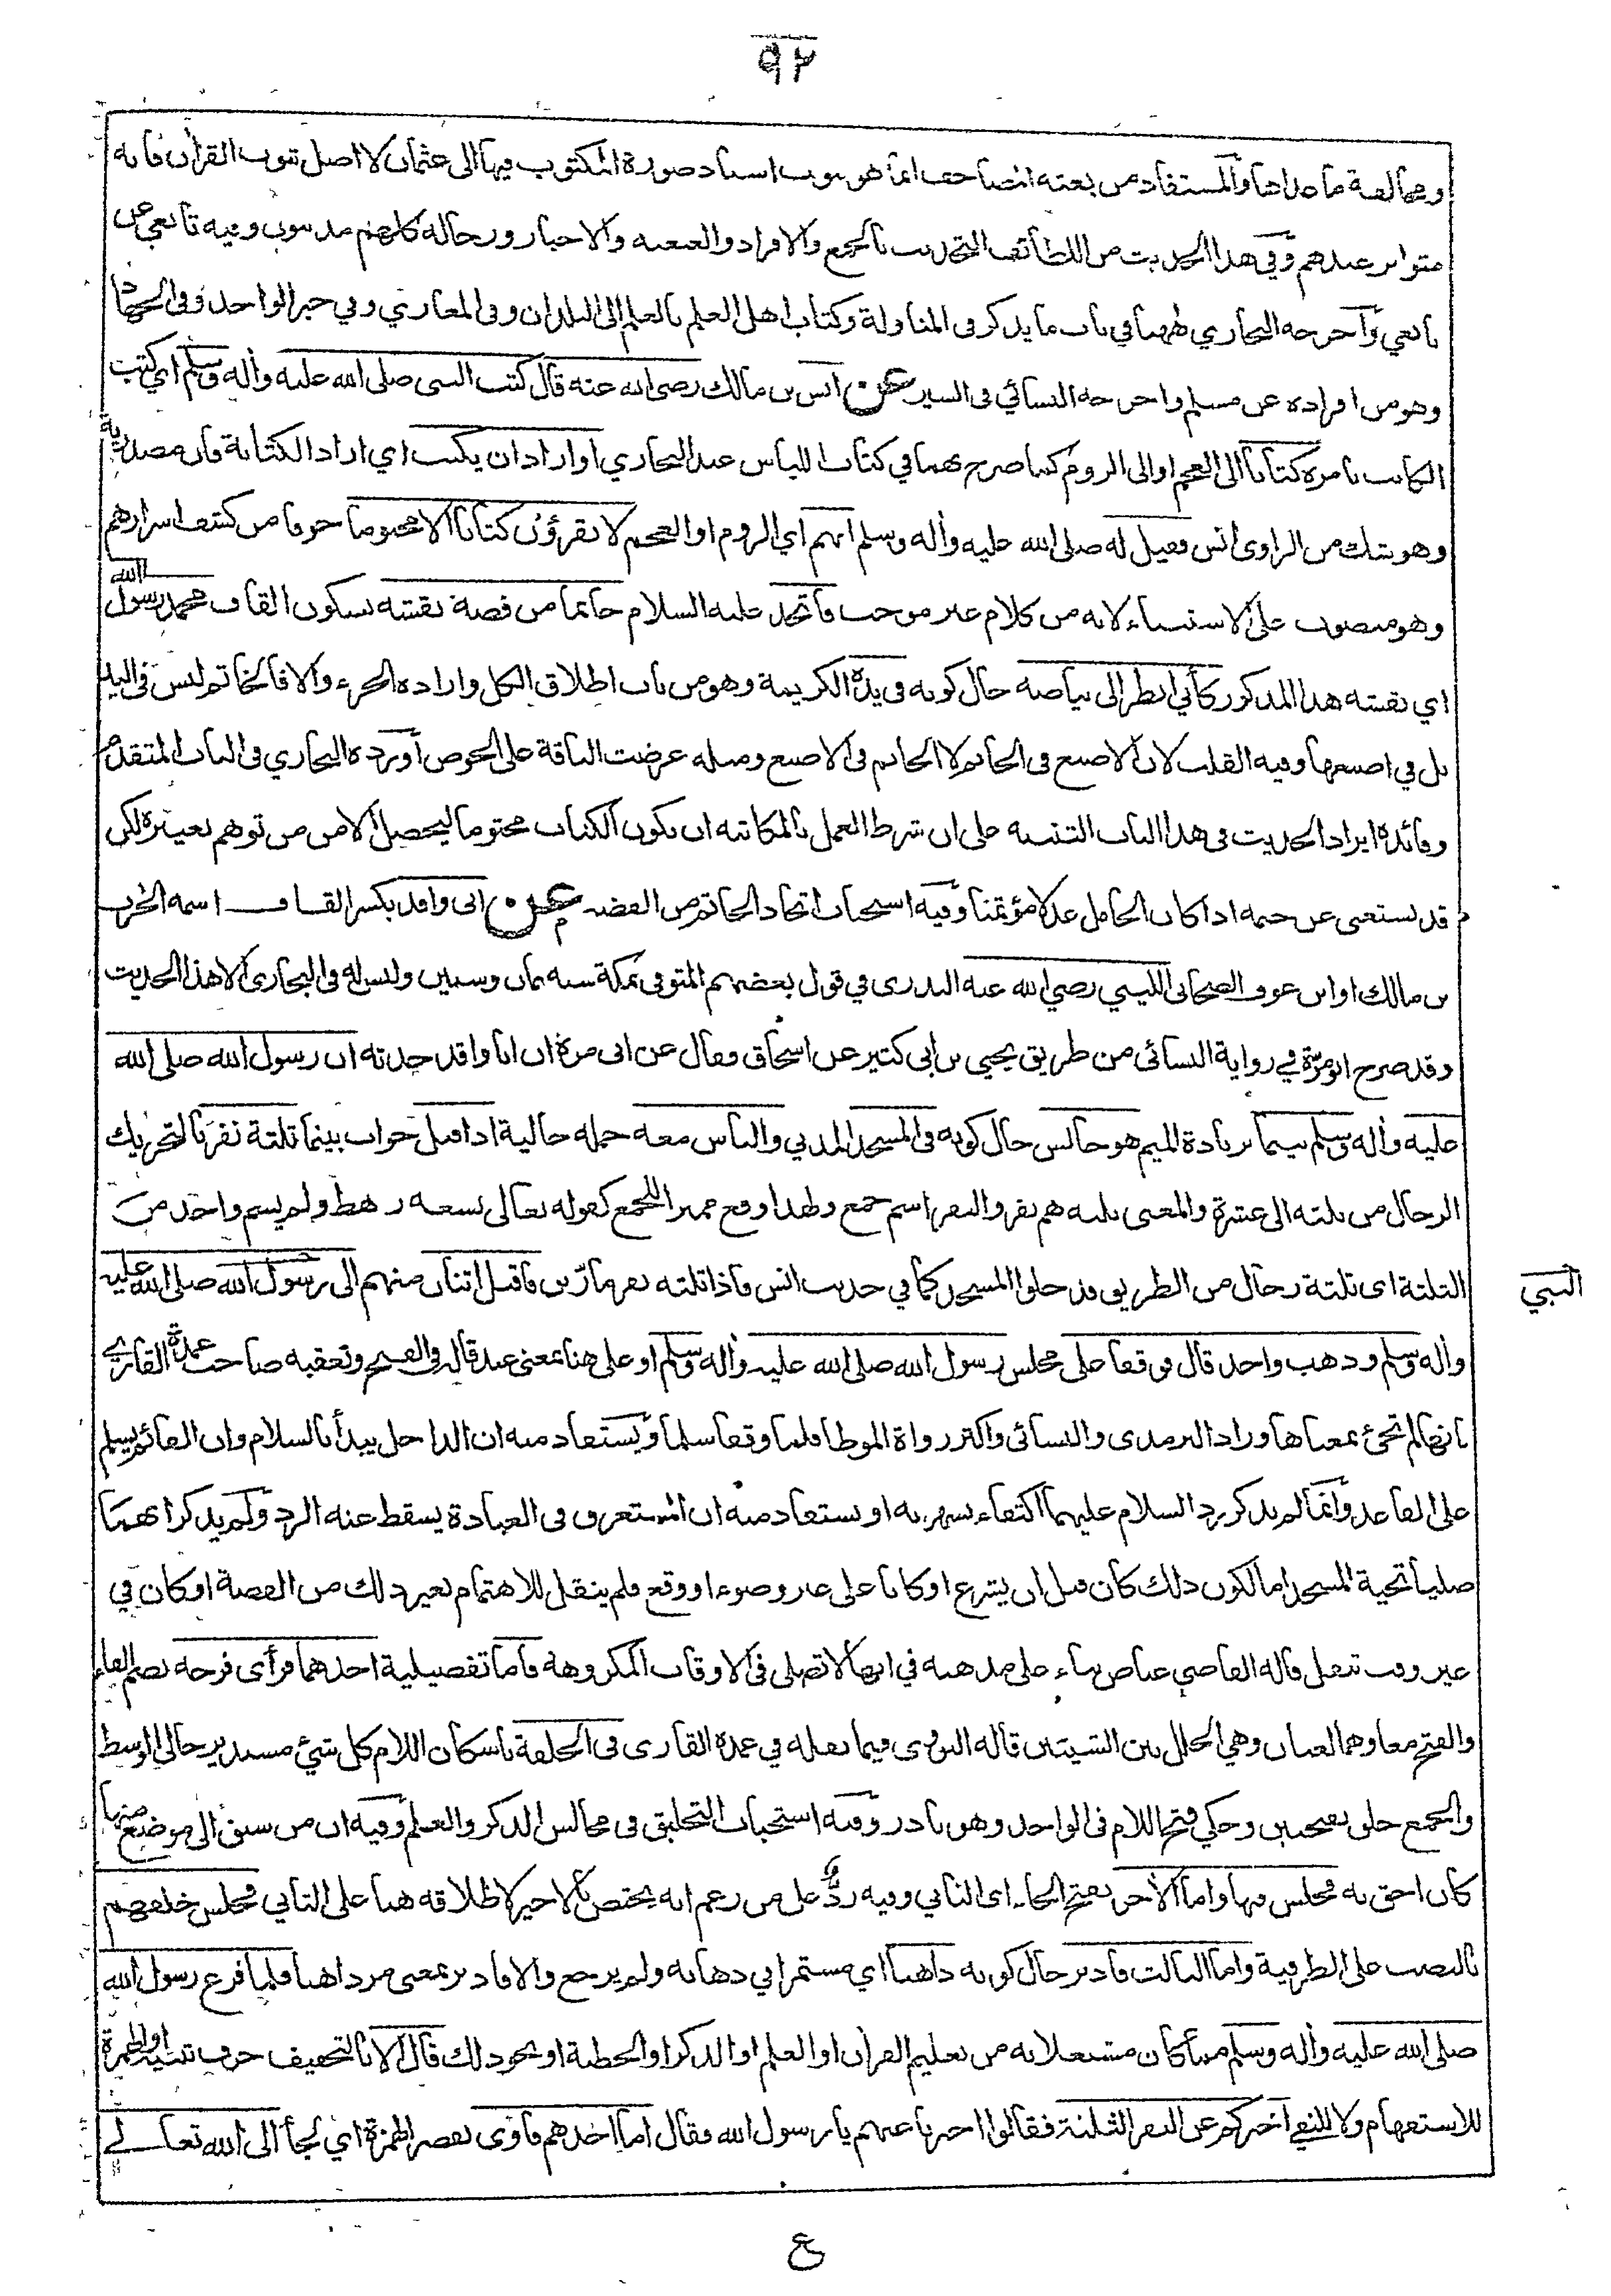 ٩٢
ومخالفة ما عداها والمستفاد من بعثه المصاحف انما هو ثبوت اسناد صورة المكتوب فيها الى عثمان لا اصل ثبوت القرأن فانه
متواتر عندهم وفي هذا الحديث من اللطائف التحديث بالجمع والافراد والعنعنة والاخبار ورجاله كلهم مدنيون وفيه تابعي عن
تابعي وأخرجه البخاري ههنا في باب ما يذكر في المناولة وكتاب اهل العلم بالعلم الى البلدان وفي المغازي وفي خبر الواحد وفي الجهاد
وهو من افراده عن مسلم واخرجه النسائي في السير عن انس بن مالك رضي الله عنه قال كتب النبي صلى الله عليه وأله وسلم اي كتب
الكاتب بامره كتابا الى العجم او الى الروم كما صرح بهما في كتاب اللباس عند البخاري او اراد ان يكتب اي اراد الكتابة فان مصدرية
وهو شك من الراوي انس فقيل له صلى الله عليه وأله وسلم انهم اي الروم او العجم لا يقرؤن كتابا الا مختوما خوفا من كشف اسرارهم
وهو منصوب على الاستثناء لانه من كلام غير موجب فاتخذ عليه السلام خاتما من فضة نقشه بسكون القاف محمد رسول الله
اي نقشه هذا المذكور كأني انظر الى بياضه حال كونه في يده الكريمة وهو من باب اطلاق الكل وارادة الجزء والا فالخاتم ليس في اليد
بل في اصبعها وفيه القلب لان الاصبع في الخاتم لا الخاتم في الاصبع ومثله عرضت الناقة على الحوض أورده البخاري في الباب المتقدم
وفائدة ايراد الحديث في هذا الباب التنبيه على ان شرط العمل بالمكاتبة ان يكون الكتاب مختوما ليحصل الامن من توهم تغييره لكن
قد يستغنى عن ختمه اذا كان الحامل عدلا مؤتمنا وفيه استحباب اتخاذ الخاتم من الفضة عن ابي واقد بكسر القاف اسمه الحرث
بن مالك او ابن عوف الصحابي الليثي رضي الله عنه البدري في قول بعضهم المتوفى بمكة سنة ثمان وستين وليس له في البخاري الا هذا الحديث
وقد صرح ابو مرة في رواية النسائي من طريق يحيى بن ابي كثير عن اسحاق فقال عن ابي مرة ان ابا واقد حدثه ان رسول الله صلى الله
عليه وأله وسلم بينما بزيادة الميم هو جالس حال كونه في المسجد المدني والناس معه جملة حالية اذا قبل جواب بينما ثلثة نفر بالتحريك
الرجال من ثلثة الى عشرة والمعنى ثلثة هم نفر والنفر اسم جمع ولهذا وقع مميزا للجمع كقوله تعالى تسعة رهط ولم يسم واحد من
الثلثة اى ثلثة رجال من الطريق فدخلوا المسجد كما في حديث انس فاذا ثلثة نفر مارّين فاقبل اثنان منهم الى رسول الله صلى الله عليه
النبي
وأله وسلم وذهب واحد قال فوقفا على مجلس رسول الله صلى الله عليه وأله وسلم او على هنا بمعنى عند قاله في الفتح وتعقبه صاحب عمدة القاري
بانها لم تجئ بمعناها وزاد الترمذى والنسائى واكثر رواة الموطا فلما وقفا سلما ويستفاد منه ان الداخل يبدأ بالسلام وان القائم يسلم
على القاعد وانما لم يذكر رد السلام عليهما اكتفاء بشهرته او يستفاد منه ان المستغرق في العبادة يسقط عنه الرد ولم يذكر انهما
صليا تحية المسجد اما لكون ذلك كان قبل ان يشرع او كانا على غير وضوء او وقع فلم ينقل للاهتمام بغير ذلك من القصة او كان في
غير وقت تنفل قاله القاضي عياض بناء على مذهبه في انها لا تصلى في الاوقات المكروهة فاما تفصيلية احدهما فرأى فرجة بضم الفاء
والفتح معا وهما لغتان وهي الخلل بين الشيئين قاله النووى فيما نقله في عمدة القارى في الحلقة باسكان اللام كل شئ مستدير خالي الوسط
والجمع حلق بفتحتين وحكي فتح اللام في الواحد وهو نادر وفيه استحباب التحليق في مجالس الذكر والعلم وفيه ان من سبق الى موضع منها
كان احق به فجلس فيها واما الأخر بفتح الخاء اى الثاني وفيه ردّ على من زعم انه يختص بالاخير لاطلاقه هنا على الثاني فجلس خلفهم
بالنصب على الظرفية واما الثالث فادبر حال كونه ذاهبا اي مستمرا في ذهابه ولم يرجع والا فادبر بمعنى مر ذاهبا فلما فرغ رسول الله
صلى الله عليه وأله وسلم مما كان مشتغلا به من تعليم القرأن او العلم او الذكر او الخطبة او نحو ذلك قال الا بالتخفيف حرف تنبيه او الهمزة
للاستفهام ولا للنفي اخبركم عن النفر الثلثة فقالوا اخبرنا عنهم يا رسول الله فقال اما احدهم فأوى بقصر الهمزة اي لجأ الى الله تعالى
ع